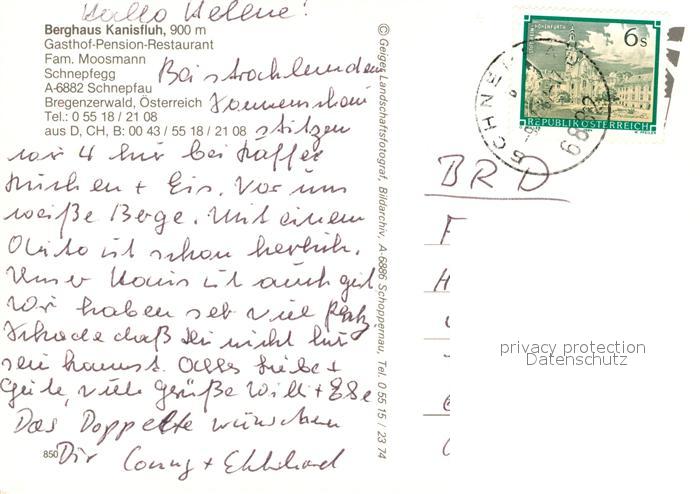 Hallo Helene!
Berghaus Kanisfluh, 900 m
Gasthof-Pension-Restaurant
Fam. Moosmann
Schnepfegg
A-6882 Schnepfau
Bregenzerwald, Österreich
Tel.: 0 55 18 / 21 08
aus D, CH, B: 00 43 / 55 18 / 21 08
Bei strahlendem
Sonnenschein
sitzen
wir 4 hier bei Kaffee
Kuchen + Eis. Vor uns
weiße Berge. Mit einem
Auto ist schon herrlich.
Unser Haus ist auch gut
Wir haben sehr viel Platz.
Schade daß Du nicht hier
sein kannst. Alles Liebe +
Gute, viele Grüße Willi + Else
Das Doppelte wünschen
Dir Conny + Ekkehard
850
© Geiger Landschaftsfotograf, Bildarchiv, A-6886 Schoppernau, Tel. 0 55 15 / 23 74
6 S
REPUBLIK ÖSTERREICH
BRD
privacy protection
Datenschutz